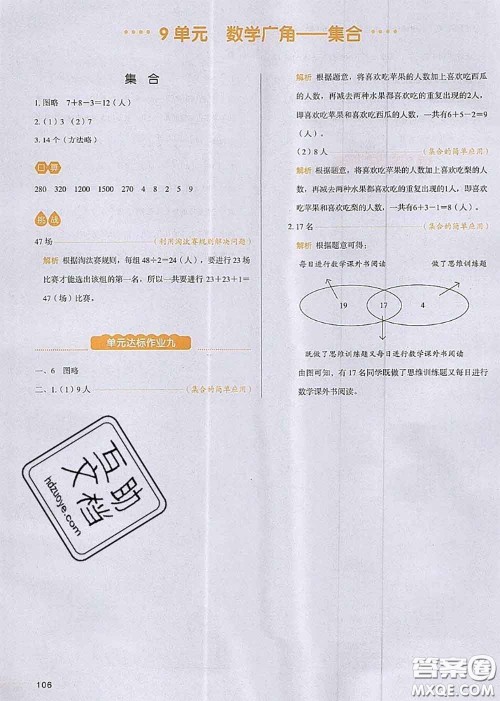 9 单元 数学广角——集合
集 合
1.图略 7+8-3=12(人)
2.(1)3 (2)7
3.14个(方法略)
口算
280 320 1200 1500 270 4 8 2 5 9
挑战
47场(利用淘汰赛规则解决问题)
解析 根据淘汰赛规则,每组48÷2=24(人),要进行23场
比赛才能选出该组的第一名,所以一共要进行23+23+1=
47(场)比赛。
单元达标作业九
一、6 图略
二、1.(1)9人(集合的简单应用)
解析 根据题意,将喜欢吃苹果的人数加上喜欢吃西瓜
的人数,再减去两种水果都喜欢吃的重复出现的2人,
即喜欢吃苹果和喜欢吃西瓜的人数,一共有6+5-2=9
(人)。
(2)8人(集合的简单应用)
解析 根据题意,将喜欢吃苹果的人数加上喜欢吃梨的
人数,再减去两种水果都喜欢吃的重复出现的1人,即喜
欢吃苹果和喜欢吃梨的人数,一共有6+3-1=8(人)。
2.17名(集合的简单应用)
解析 根据题意可得:
每日进行数学课外书阅读 做了思维训练题
19 17 4
既做了思维训练题又每日进行数学课外书阅读
由图可知,有17名同学既做了思维训练题又每日进行
数学课外书阅读。
互助文档
hdzuoye.com
106
答案圈
MXQE.COM